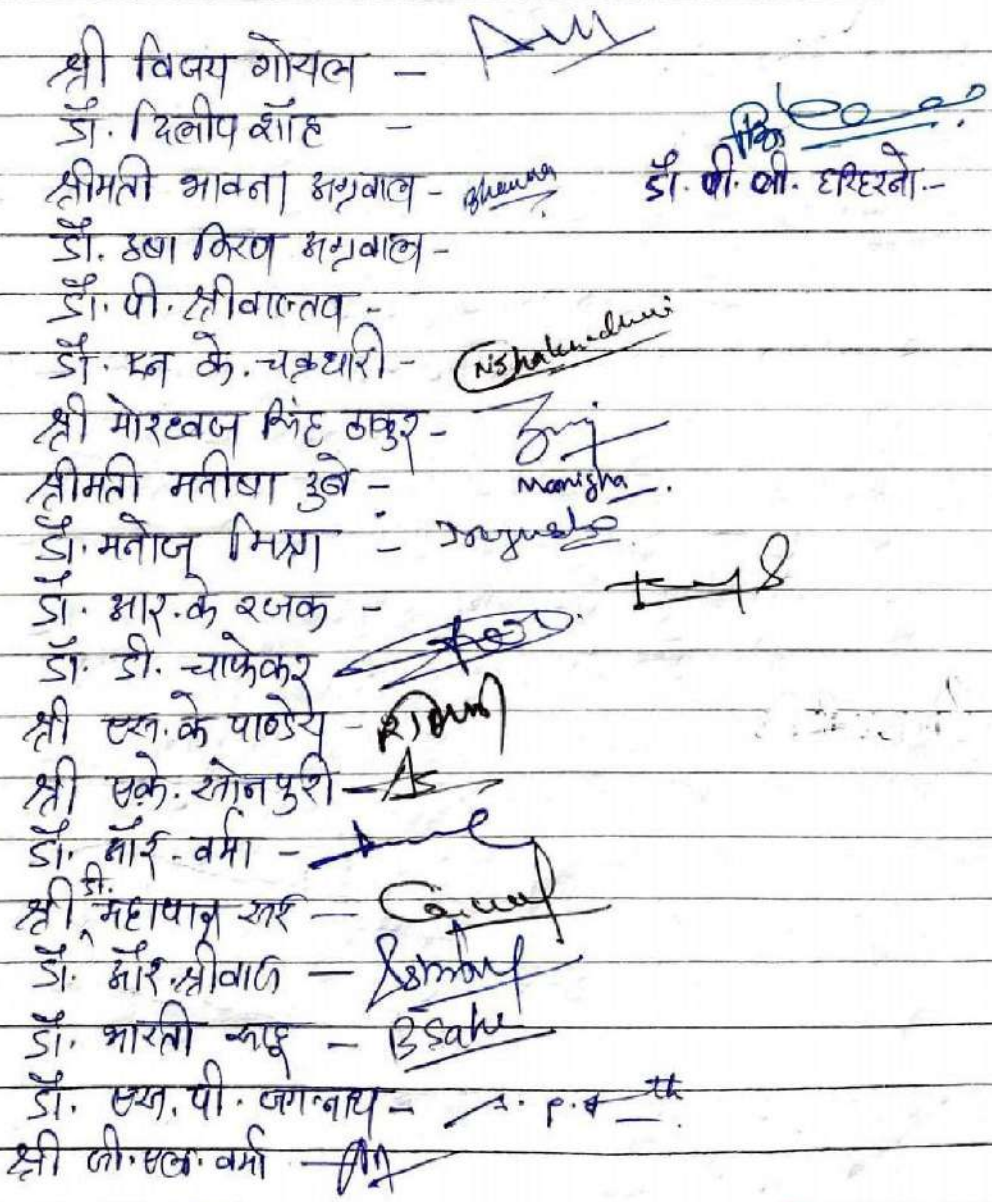 श्री विजय गोयल -
डॉ. दिलीप शॉह -
श्रीमती भावना अग्रवाल - Bhawna डॉ. पी. बी. हरिहरनो.-
डॉ. उषा किरण अग्रवाल-
डॉ. पी. श्रीवास्तव -
डॉ. एन के. चक्रधारी -
श्री मोरध्वज सिंह ठाकुर -
श्रीमती मनीषा दुबे - Manisha
डॉ. मनोज मिश्रा -
डॉ. आर. के रजक -
डॉ. डी. चाफेकर
श्री एस. के पाण्डेय -
श्री एके. सोनपुरी -
डॉ. आर. वर्मा -
श्री डी. महापात्र सर -
डॉ. आर. श्रीवास -
डॉ. भारती साहू - B Sahu
डॉ. एस. पी. जगन्नाथ -
श्री जी. एल. वर्मा -